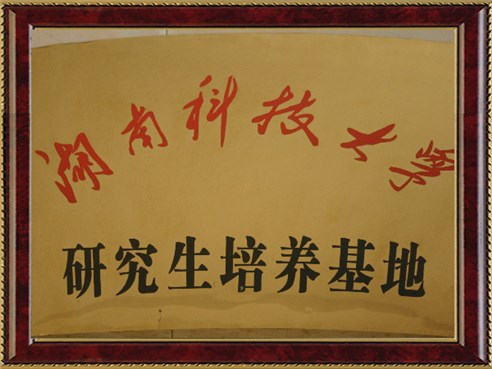 湖南科技大学
研究生培养基地